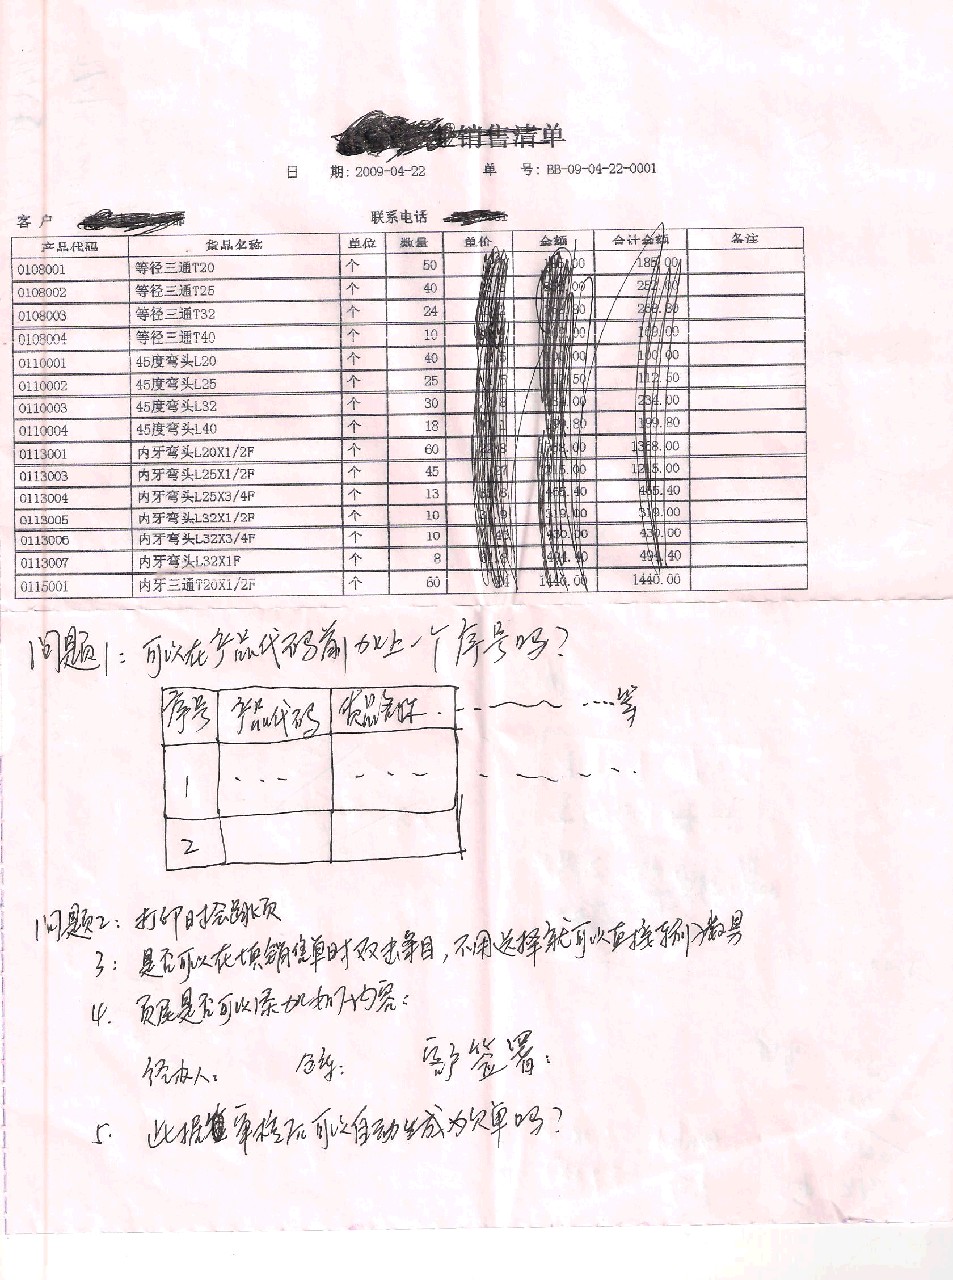 销售清单
日 期: 2009-04-22 单 号: BB-09-04-22-0001
客 户 联系电话
产品代码 货品名称 单位 数量 单价 金额 合计金额 备注
0108001 等径三通T20 个 50 185.00
0108002 等径三通T25 个 40 252.00
0108003 等径三通T32 个 24
0108004 等径三通T40 个 10
0110001 45度弯头L20 个 40 100.00
0110002 45度弯头L25 个 25 112.50
0110003 45度弯头L32 个 30 234.00
0110004 45度弯头L40 个 18 199.80
0113001 内牙弯头L20X1/2F 个 60 1368.00
0113003 内牙弯头L25X1/2F 个 45 1215.00
0113004 内牙弯头L25X3/4F 个 13 465.40
0113005 内牙弯头L32X1/2F 个 10 319.00
0113006 内牙弯头L32X3/4F 个 10 430.00
0113007 内牙弯头L32X1F 个 8 494.40
0115001 内牙三通T20X1/2F 个 60 1440.00 1440.00
问题1: 可以在产品代码前加上一个序号吗?
序号 产品代码 货品名称 等
1
2
问题2: 打印时会跳页
3: 是否可以在填销售单时双击条目, 不用选择就可以直接
4. 页尾是否可以添加如下内容:
经办人: 仓库: 客户签署:
5. 此据审核后可以自动生成为欠单吗?